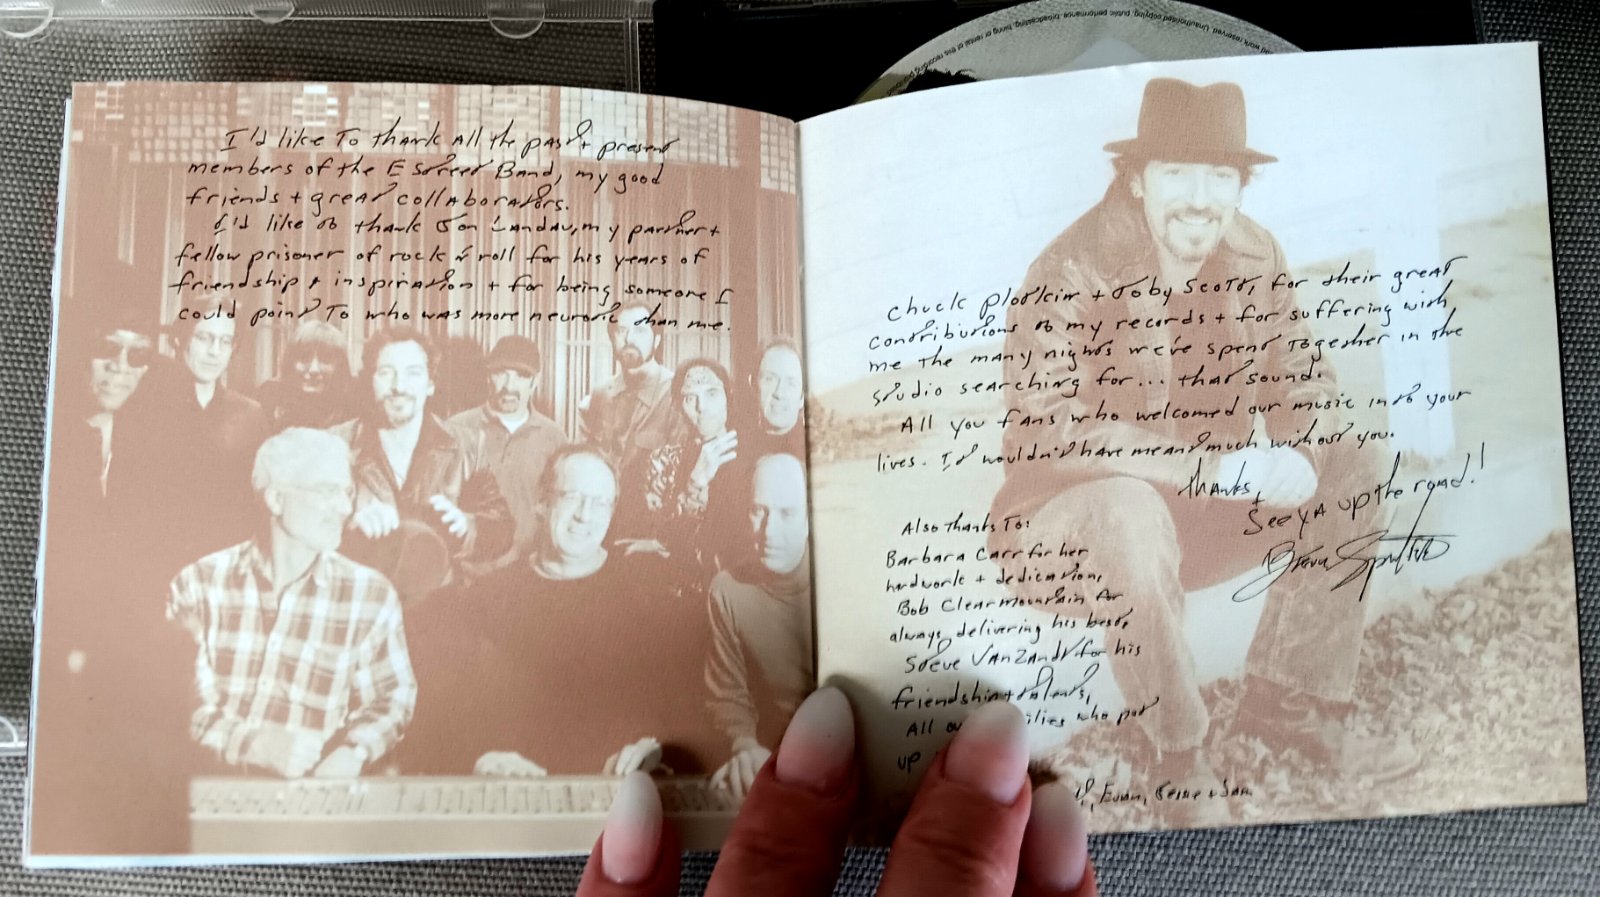 I'd like to thank all the past + present
members of the E Street Band, my good
friends + great collaborators.
I'd like to thank Jon Landau, my partner +
fellow prisoner of rock n' roll for his years of
friendship + inspiration + for being someone I
could point to who was more neurotic than me.
Chuck Plotkin + Toby Scott, for their great
contributions to my records + for suffering with
me the many nights we've spent together in the
studio searching for... that sound.
All you fans who welcomed our music into your
lives. It wouldn't have meant much without you.
thanks,
+
See ya up the road!
Bruce Springsteen
Also thanks to:
Barbara Carr for her
hardwork + dedication,
Bob Clearmountain for
always delivering his best,
Steve Van Zandt for his
friendship + talents,
All who put
up
Evan, Jesse + Sam
work reserved. Unauthorised copying, public performance, broadcasting, hiring or rental of this recording